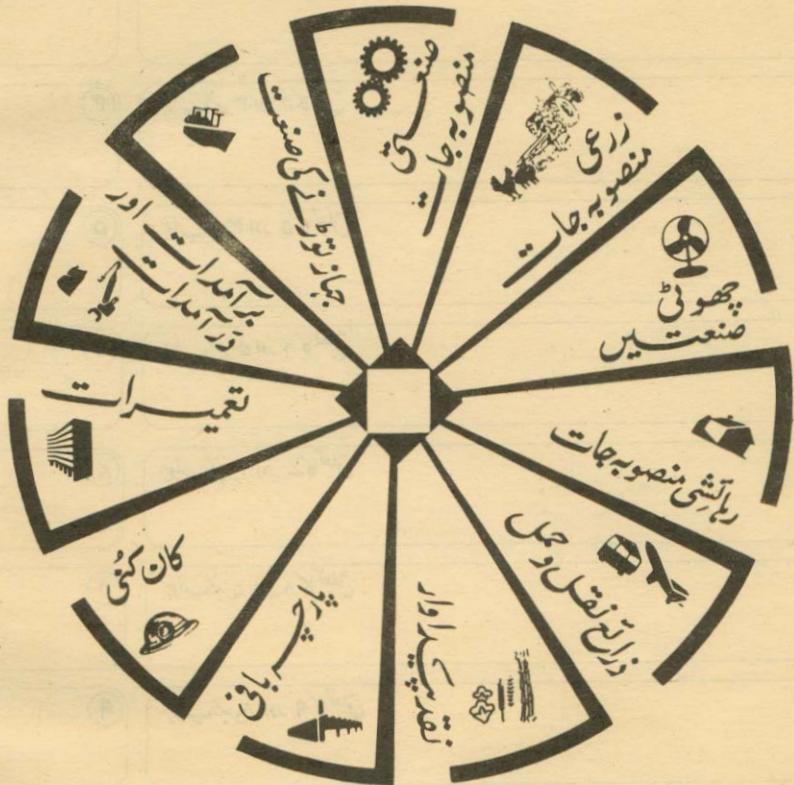 صنعتی
منصوبہ جات
زرعی
منصوبہ جات
چھوٹی
صنعتیں
رہائشی منصوبہ جات
ذرائع نقل و حمل
نقد پیداوار
پارچہ بافی
کان کنی
تعمیرات
برآمدات اور
درآمدات
جہاز توڑنے کی صنعت